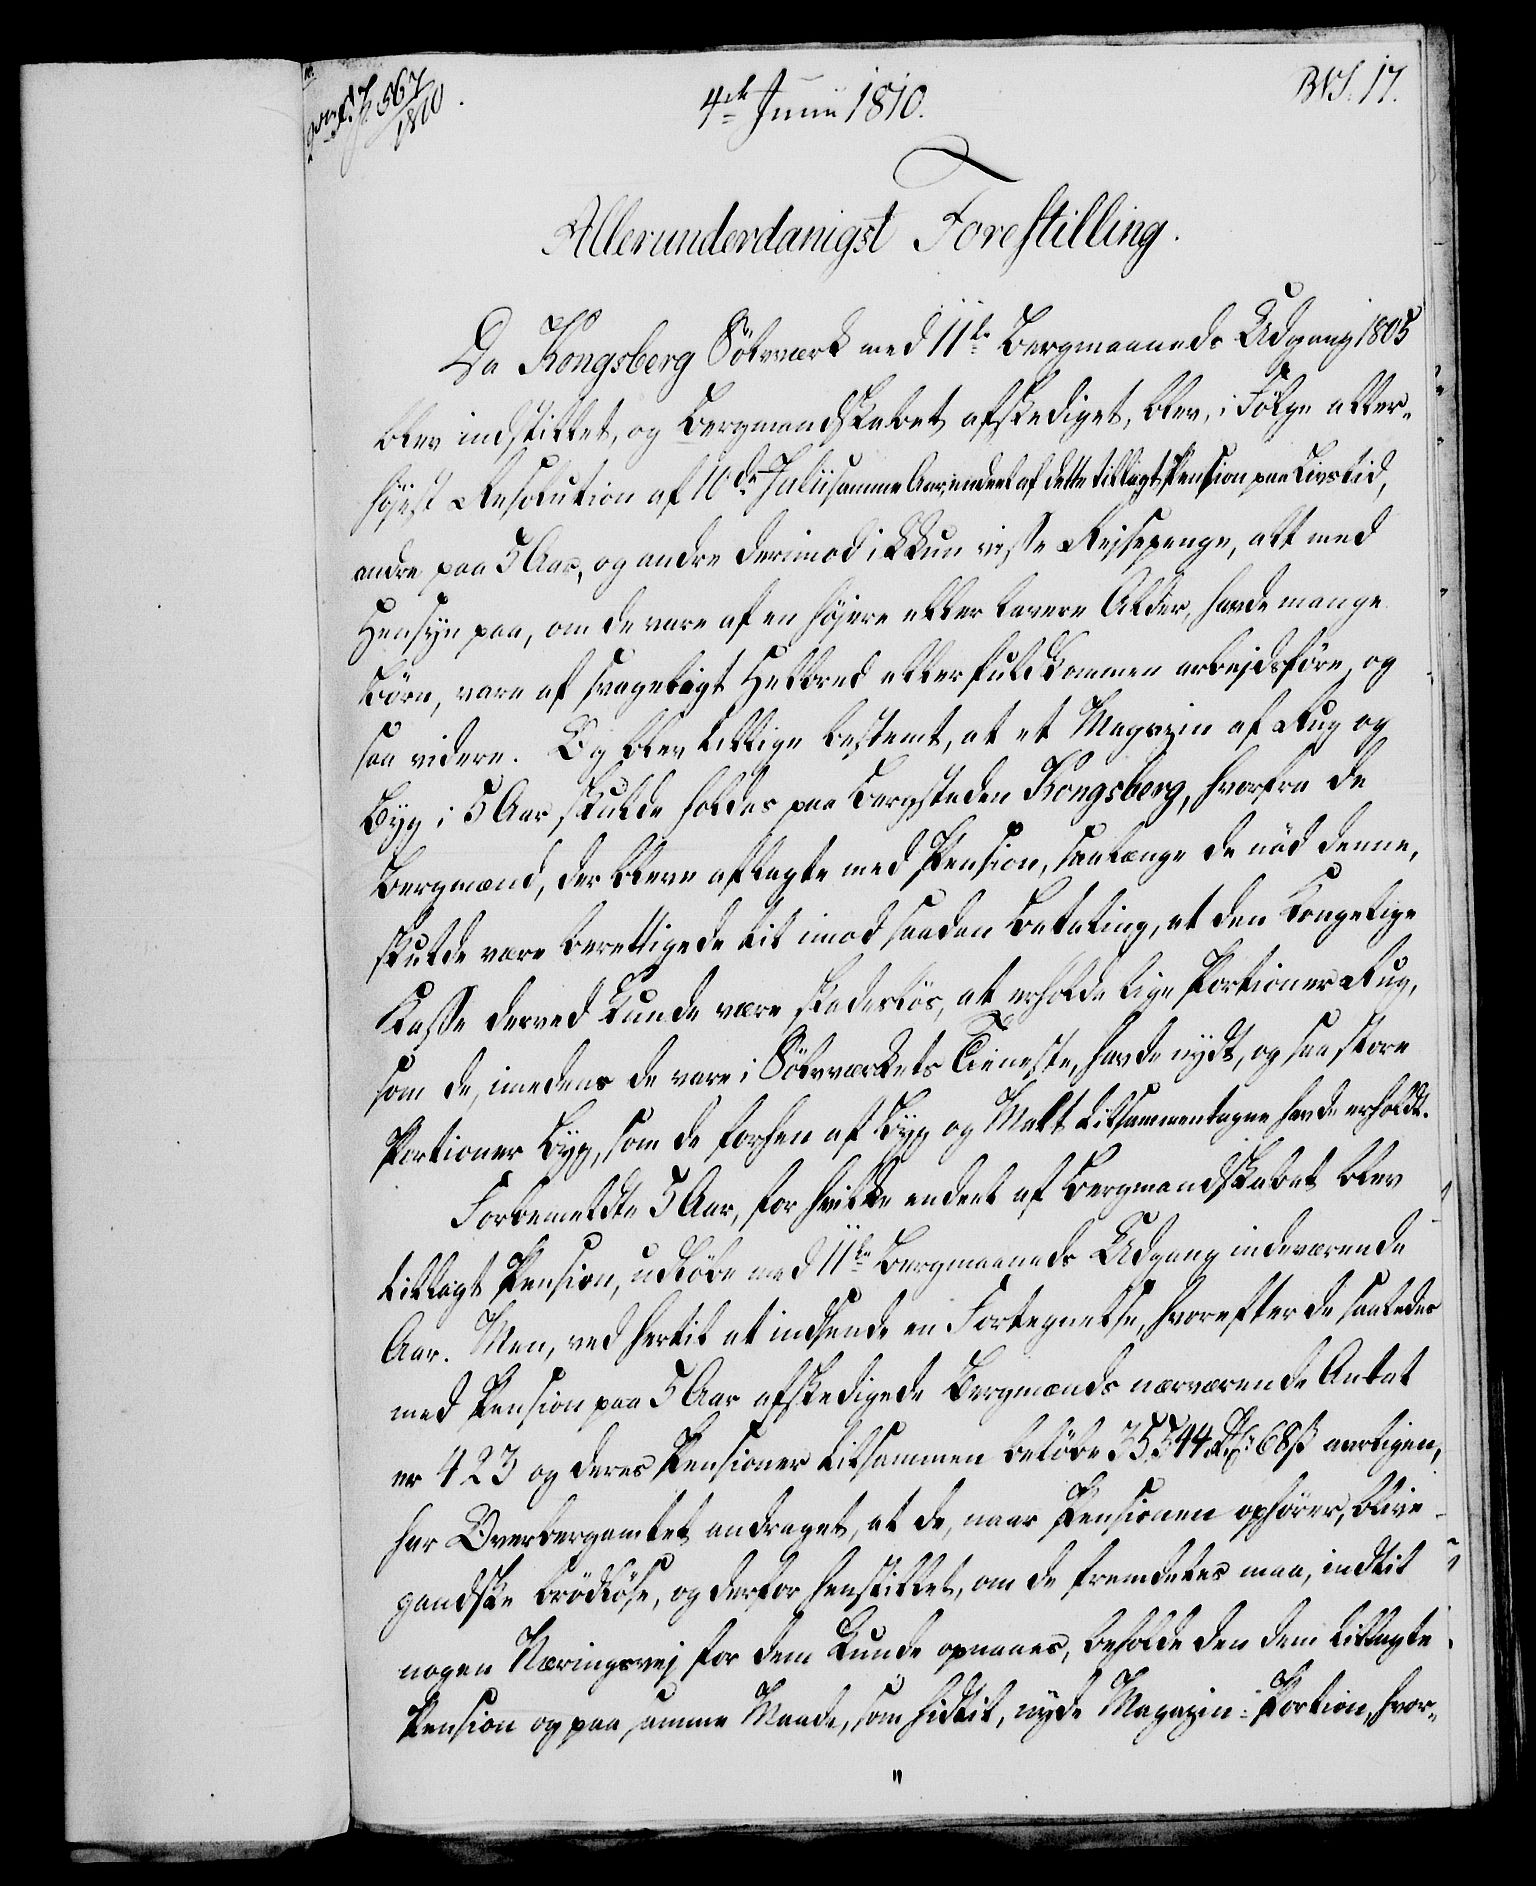 567
1810
4de Junii 1810.
B.N.S. 17.
Allerunderdanigst Forestilling.
Da Kongsberg Sölvværk med 11te Bergmaaneds Udgang 1805
blev indstillet, og Bergmandskabet afskediget, blev, i Fölge aller-
höjest Resolution af 10de Julii samme Aar, endeel af dette tillagt Pension paa Livstid,
andre paa 5 Aar, og andre derimod ikkun visse Rejsepenge, alt med
Hensyn paa, om de vare af en höjere eller lavere Alder, havde mange
Börn, vare af svageligt Helbred eller fuldkommen arbejdsföre, og
saa videre. Og blev tillige bestemt, at et Magazin af Rug og
Byg i 5 Aar skulde holdes paa Bergstaden Kongsberg, hvorfra de
Bergmænd, der bleve aflagte med Pension, saalænge de nöd denne,
skulde være berettigede til imod saadan Betaling, at den Kongelige
Kasse derved kunde være skadeslös, at erholde lige Portioner Rug,
som de, imedens de vare i Sölvværkets Tieneste, havde nydt, og saa store
Portioner Byg, som de forhen af Byg og Malt tilsammentagne havde erholdt.
Forbemeldte 5 Aar, for hvilke endeel af Bergmandskabet blev
tillagt Pension, udlöbe med 11te Bergmaaneds Udgang indeværende
Aar. Men, ved hertil at indsende en Fortegnelse, hvorefter de saaledes
med Pension paa 5 Aar afskedigede Bergmænds nærværende Antal
er 423 og deres Pensioner tilsammen belöbe 35,544 Rdr: 68 ß aarligen,
har Overbergamtet andraget, at de, naar Pensionen ophörer, blive
gandske brödlöse, og derfor henstillet, om de fremdeles maa, indtil
nogen Næringsvej for dem kunde opnaaes, beholde den dem tillagte
Pension og paa samme Maade, som hidtil, nyde Magazin-Portion, hvor-
"